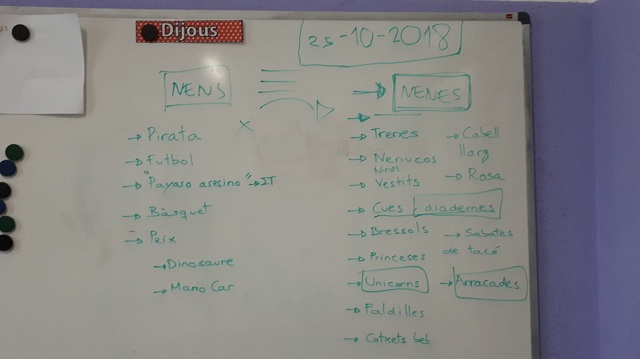 Dijous
25-10-2018
NENS
NENES
→ Pirata
→ Futbol
→ "Payaso asesino" → IT
→ Bàsquet
→ Peix
→ Dinosaure
→ Mario Car
→ Trenes
→ Nenucos
Ninos
→ Vestits
→ Cues / diademes
→ Bressols
→ Princeses
→ Unicorns
→ Faldilles
→ Cotxets beb
→ Cabell
llarg
→ Rosa
→ Sabates
de tacó
→ Arracades